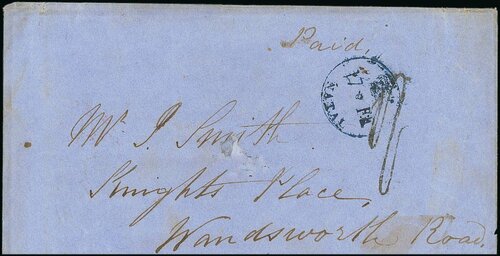 Paid,
NATAL
Mr. J. Smith
Knights Place,
Wandsworth Road.